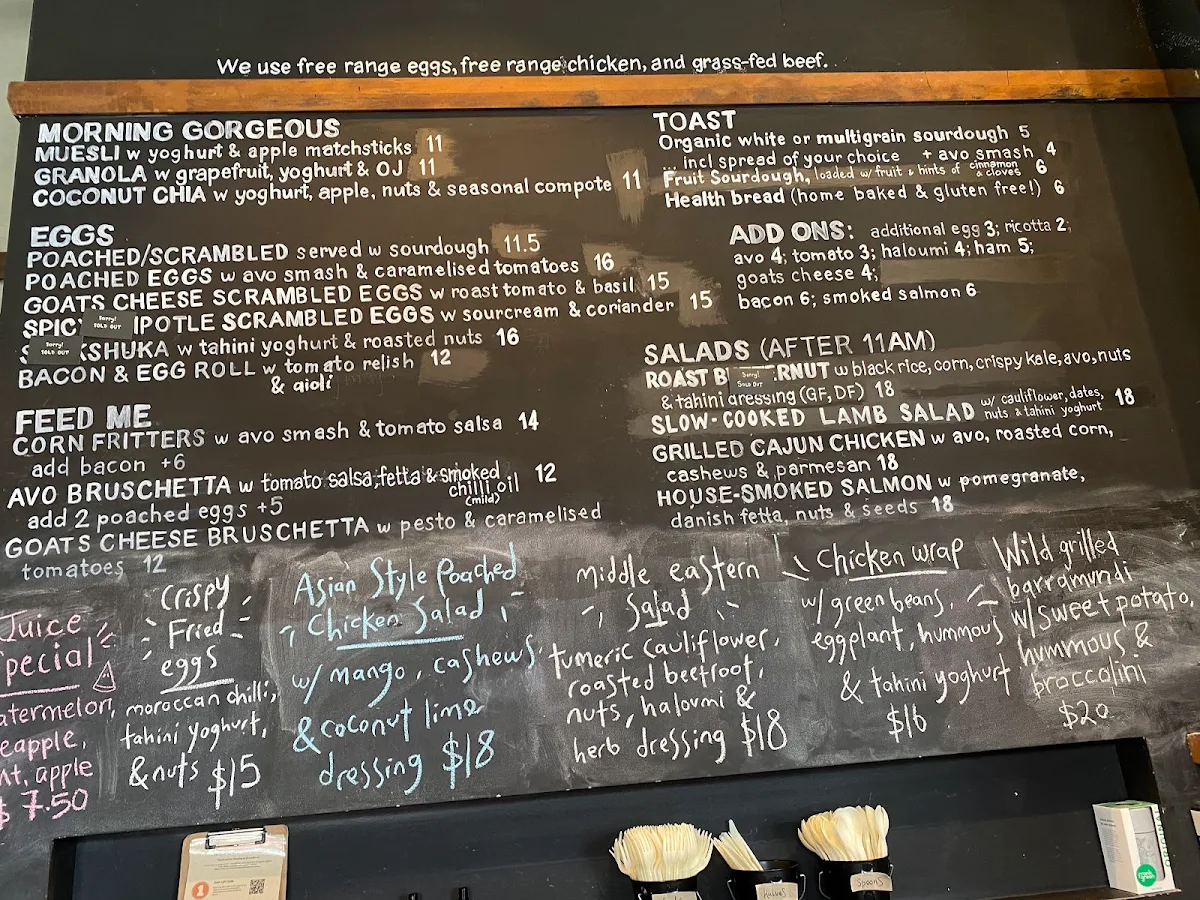 We use free range eggs, free range chicken, and grass-fed beef.
MORNING GORGEOUS
MUESLI w yoghurt & apple matchsticks 11
GRANOLA w grapefruit, yoghurt & OJ 11
COCONUT CHIA w yoghurt, apple, nuts & seasonal compote 11
EGGS
POACHED/SCRAMBLED served w sourdough 11.5
POACHED EGGS w avo smash & caramelised tomatoes 16
GOATS CHEESE SCRAMBLED EGGS w roast tomato & basil 15
SPICY IPOTLE SCRAMBLED EGGS w sourcream & coriander 15
Sorry!
SOLD OUT
S KSHUKA w tahini yoghurt & roasted nuts 16
Sorry!
SOLD OUT
BACON & EGG ROLL w tomato relish 12
& aioli
FEED ME
CORN FRITTERS w avo smash & tomato salsa 14
add bacon +6
AVO BRUSCHETTA w tomato salsa, fetta & smoked
chilli oil 12
(mild)
add 2 poached eggs +5
GOATS CHEESE BRUSCHETTA w pesto & caramelised
tomatoes 12
TOAST
Organic white or multigrain sourdough 5
... incl spread of your choice + avo smash 4
Fruit Sourdough, loaded w/ fruit & hints of cinnamon & cloves 6
Health bread (home baked & gluten free!) 6
ADD ONS: additional egg 3; ricotta 2;
avo 4; tomato 3; haloumi 4; ham 5;
goats cheese 4;
bacon 6; smoked salmon 6
SALADS (AFTER 11AM)
ROAST B RNUT w black rice, corn, crispy kale, avo, nuts
Sorry!
SOLD OUT
& tahini dressing (GF, DF) 18
SLOW-COOKED LAMB SALAD w/ cauliflower, dates,
nuts & tahini yoghurt 18
GRILLED CAJUN CHICKEN w avo, roasted corn,
cashews & parmesan 18
HOUSE-SMOKED SALMON w pomegranate,
danish fetta, nuts & seeds 18
Juice
pecial
atermelon,
eapple,
nt, apple
$7.50
Crispy
Fried
eggs
moroccan chilli,
tahini yoghurt,
& nuts $15
Asian Style Poached
Chicken Salad
w/ mango, cashews
& coconut lime
dressing $18
middle eastern
Salad
tumeric cauliflower,
roasted beetroot,
nuts, haloumi &
herb dressing $18
Chicken wrap
w/ green beans,
eggplant, hummous
& tahini yoghurt
$16
Wild grilled
barramundi
w/ sweet potato,
hummous &
broccolini
$20
1
knives
Spoons